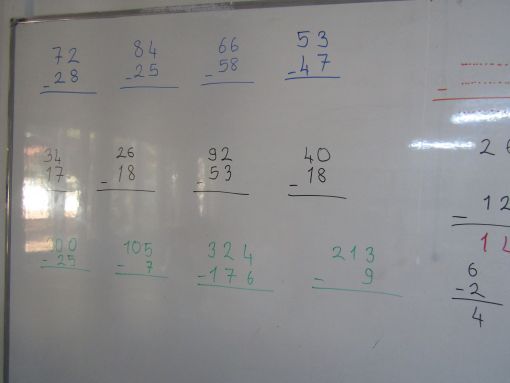 72 84 66 53
-28 -25 -58 -47
34 26 92 40
17 -18 -53 -18
300 105 324 213
-25 -7 -176 -9
2
-12
1
6
-2
4